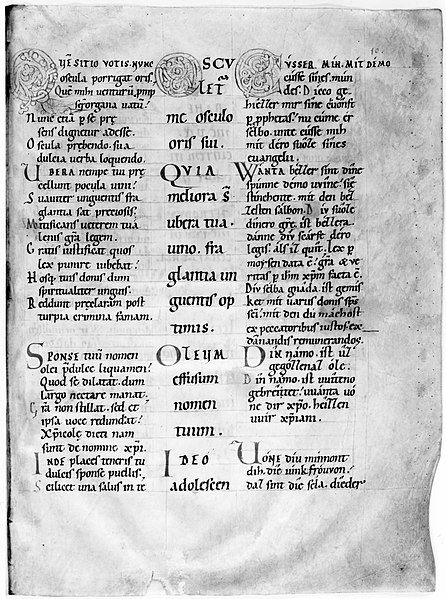 QVĒ SITIO VOTIS. NVNC
oscula porrigat oris.
Quē mihi venturū ꝓmp
serorgana vatū.
Nunc etiā p se prę
sens dignetur adesse.
Oscula prębendo. sua
dulcia verba loquendo.
UBERA nempe tui prę
cellunt pocula vini.
Suauiter unguentis fra
glantia sat preciosis.
Mitificans ueterem tua
lenis gr̄a legem.
Gratis iustificat quos
lex punire iubebat.
Hosq; tuis donis dum
spiritualiter unguis.
Reddunt pręclaram post
turpia crimina famam.
SPONSE tuū nomen
olei p̄dulce liquamen.
Quod se dilatat. dum
largo nectare manat.
Gr̄a non stillat. sed et
ipsa uoce redundat.
Xpicolę dicti nam
sunt de nomine xpi.
INDE places teneris tu
dulcis sponse puellis.
Scilicet una salus in te
OSCV
LET
me osculo
oris sui.
QVIA
meliora s̄
ubera tua
uino. fra
glantia un
guentis op
timis.
OLEUM
effusum
nomen
tuum.
IDEO
adolescen
CUSSER MIH. MIT DEMO
cusse sines mun
des. Dicco ge
hiezzer mir sine cuonft
p pphetas. nu cume er
selbo. unte cusse mih
mit dero suoze sines
euangelii.
WANTA bezzer sint dine
spunne demo uvine. sie
stinchente. mit den bez
zesten salbon. Diu suoze
dinero grę. ist bezzera
danne diu scarfe dero
legis. als iz quit. Lex p
moysen data ē. gra & ve
ritas p ihm xpm facta ē.
Diu selba gnada. ist gemis
ket mit varus donis sps
sci. mit den du machost
ex peccatoribus iustos. ex
damnandis remunerandos.
DIN námo. ist uz
gegozzenaz ole.
Din námo. ist uuiteno
gebreitet. uuanta uo
ne dir xpo. hezzen
uuir xpiani.
UONE diu minnont
dih. die uink frouvon.
daz sint die sela. dieder